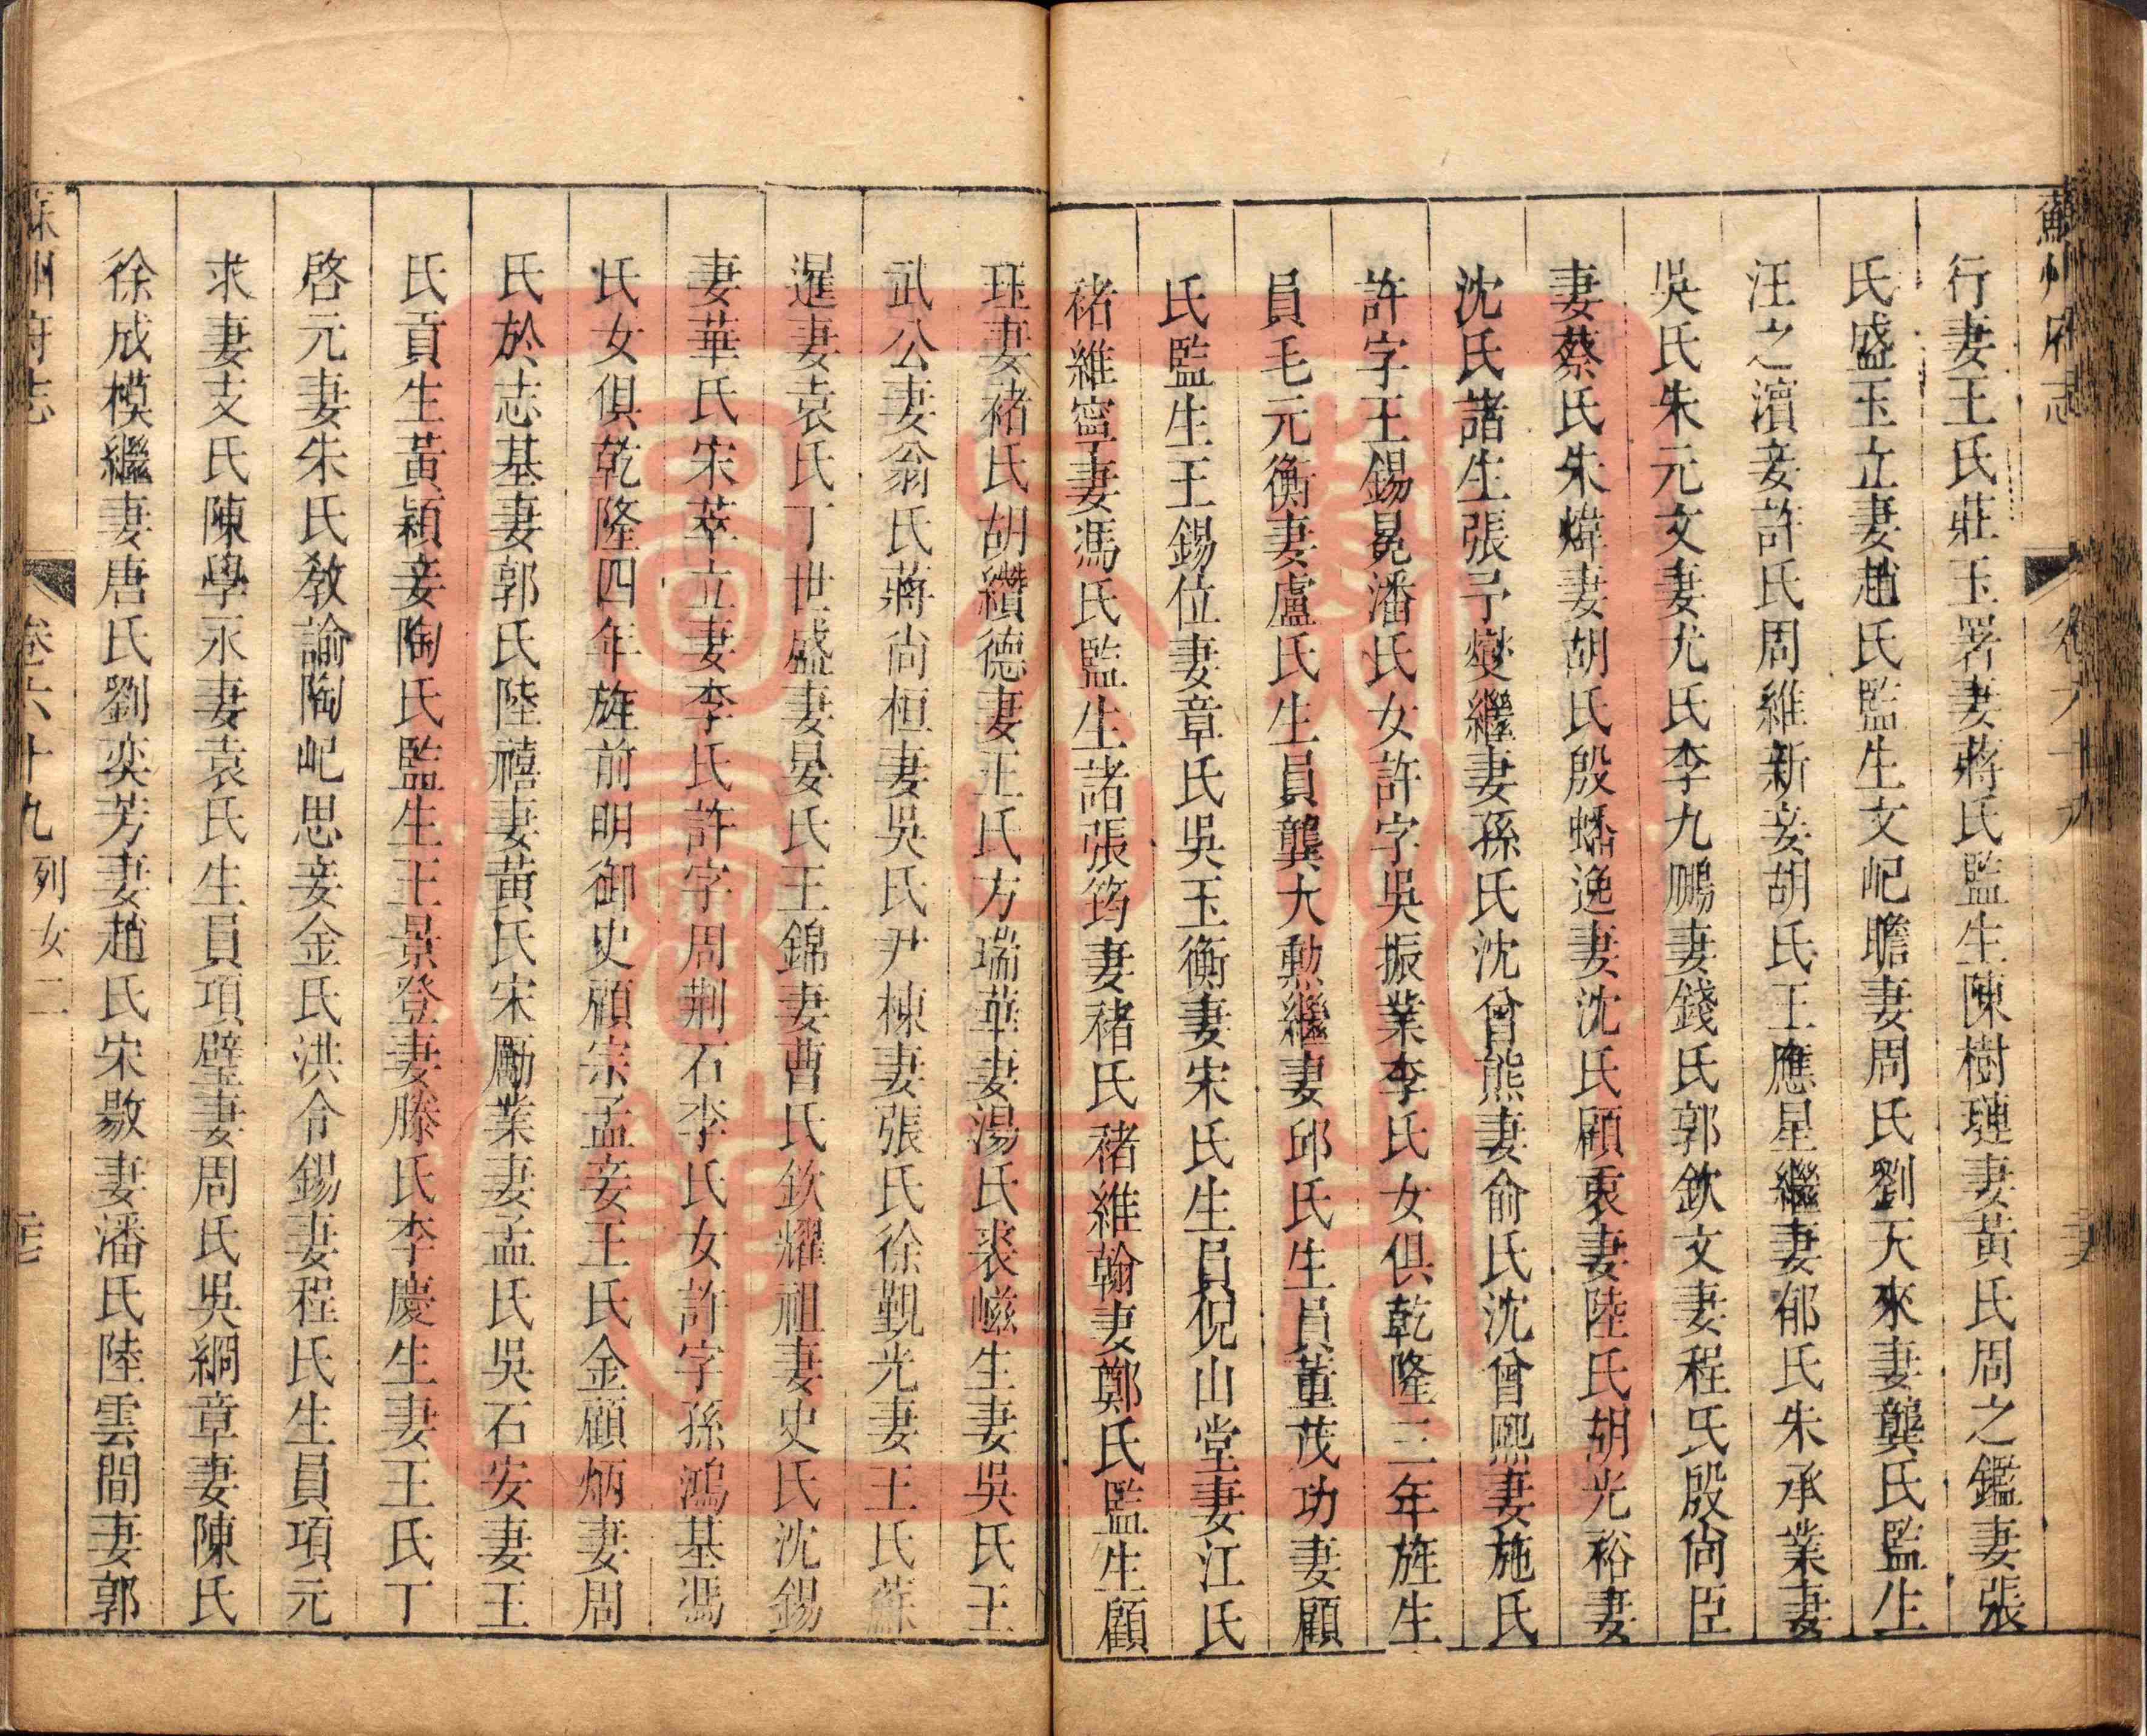 蘇州府志
卷六十九
行妻王氏莊玉署妻蔣氏監生陳樹璉妻黃氏周之鑑妻張
氏盛玉立妻趙氏監生文屺瞻妻周氏劉天來妻龔氏監生
汪之濵妾許氏周維新妾胡氏王應星繼妻郁氏朱承業妻
吳氏朱元文妻尤氏李九鵬妻錢氏郭欽文妻程氏殷尚臣
妻蔡氏朱煒妻胡氏殷蟠逸妻沈氏顧衷妻陸氏胡光裕妻
沈氏諸生張予燮繼妻孫氏沈曾熊妻俞氏沈曾熙妻施氏
許字王錫冕潘氏女許字吳振業李氏女俱乾隆三年旌生
員毛元衡妻盧氏生員龔大勲繼妻邱氏生員董茂功妻顧
氏監生王錫位妻章氏吳玉衡妻宋氏生員倪山堂妻江氏
褚維寧妻馮氏監生諸張筠妻褚氏褚維翰妻鄭氏監生顧
珏妻褚氏胡纘德妻王氏方瑞華妻湯氏裘嵫生妻吳氏王
武公妻翁氏蔣尚桓妻吳氏尹棟妻張氏徐覲光妻王氏蘇
暹妻袁氏丁世盛妻晏氏王錦妻曹氏欽耀祖妻史氏沈錫
妻華氏宋萃立妻李氏許字周荆石李氏女許字孫鴻基馮
氏女俱乾隆四年旌前明御史顧宗孟妾王氏金顧炳妻周
氏於志基妻郭氏陸禧妻黃氏宋勵業妻孟氏吳石安妻王
氏貢生黃穎妾陶氏監生王景登妻滕氏李慶生妻王氏丁
啓元妻朱氏教諭陶屺思妾金氏洪令錫妻程氏生員項元
求妻支氏陳學永妻袁氏生員項璧妻周氏吳綱章妻陳氏
徐成模繼妻唐氏劉奕芳妻趙氏宋敭妻潘氏陸雲間妻郭
蘇州府志
卷六十九 列女二